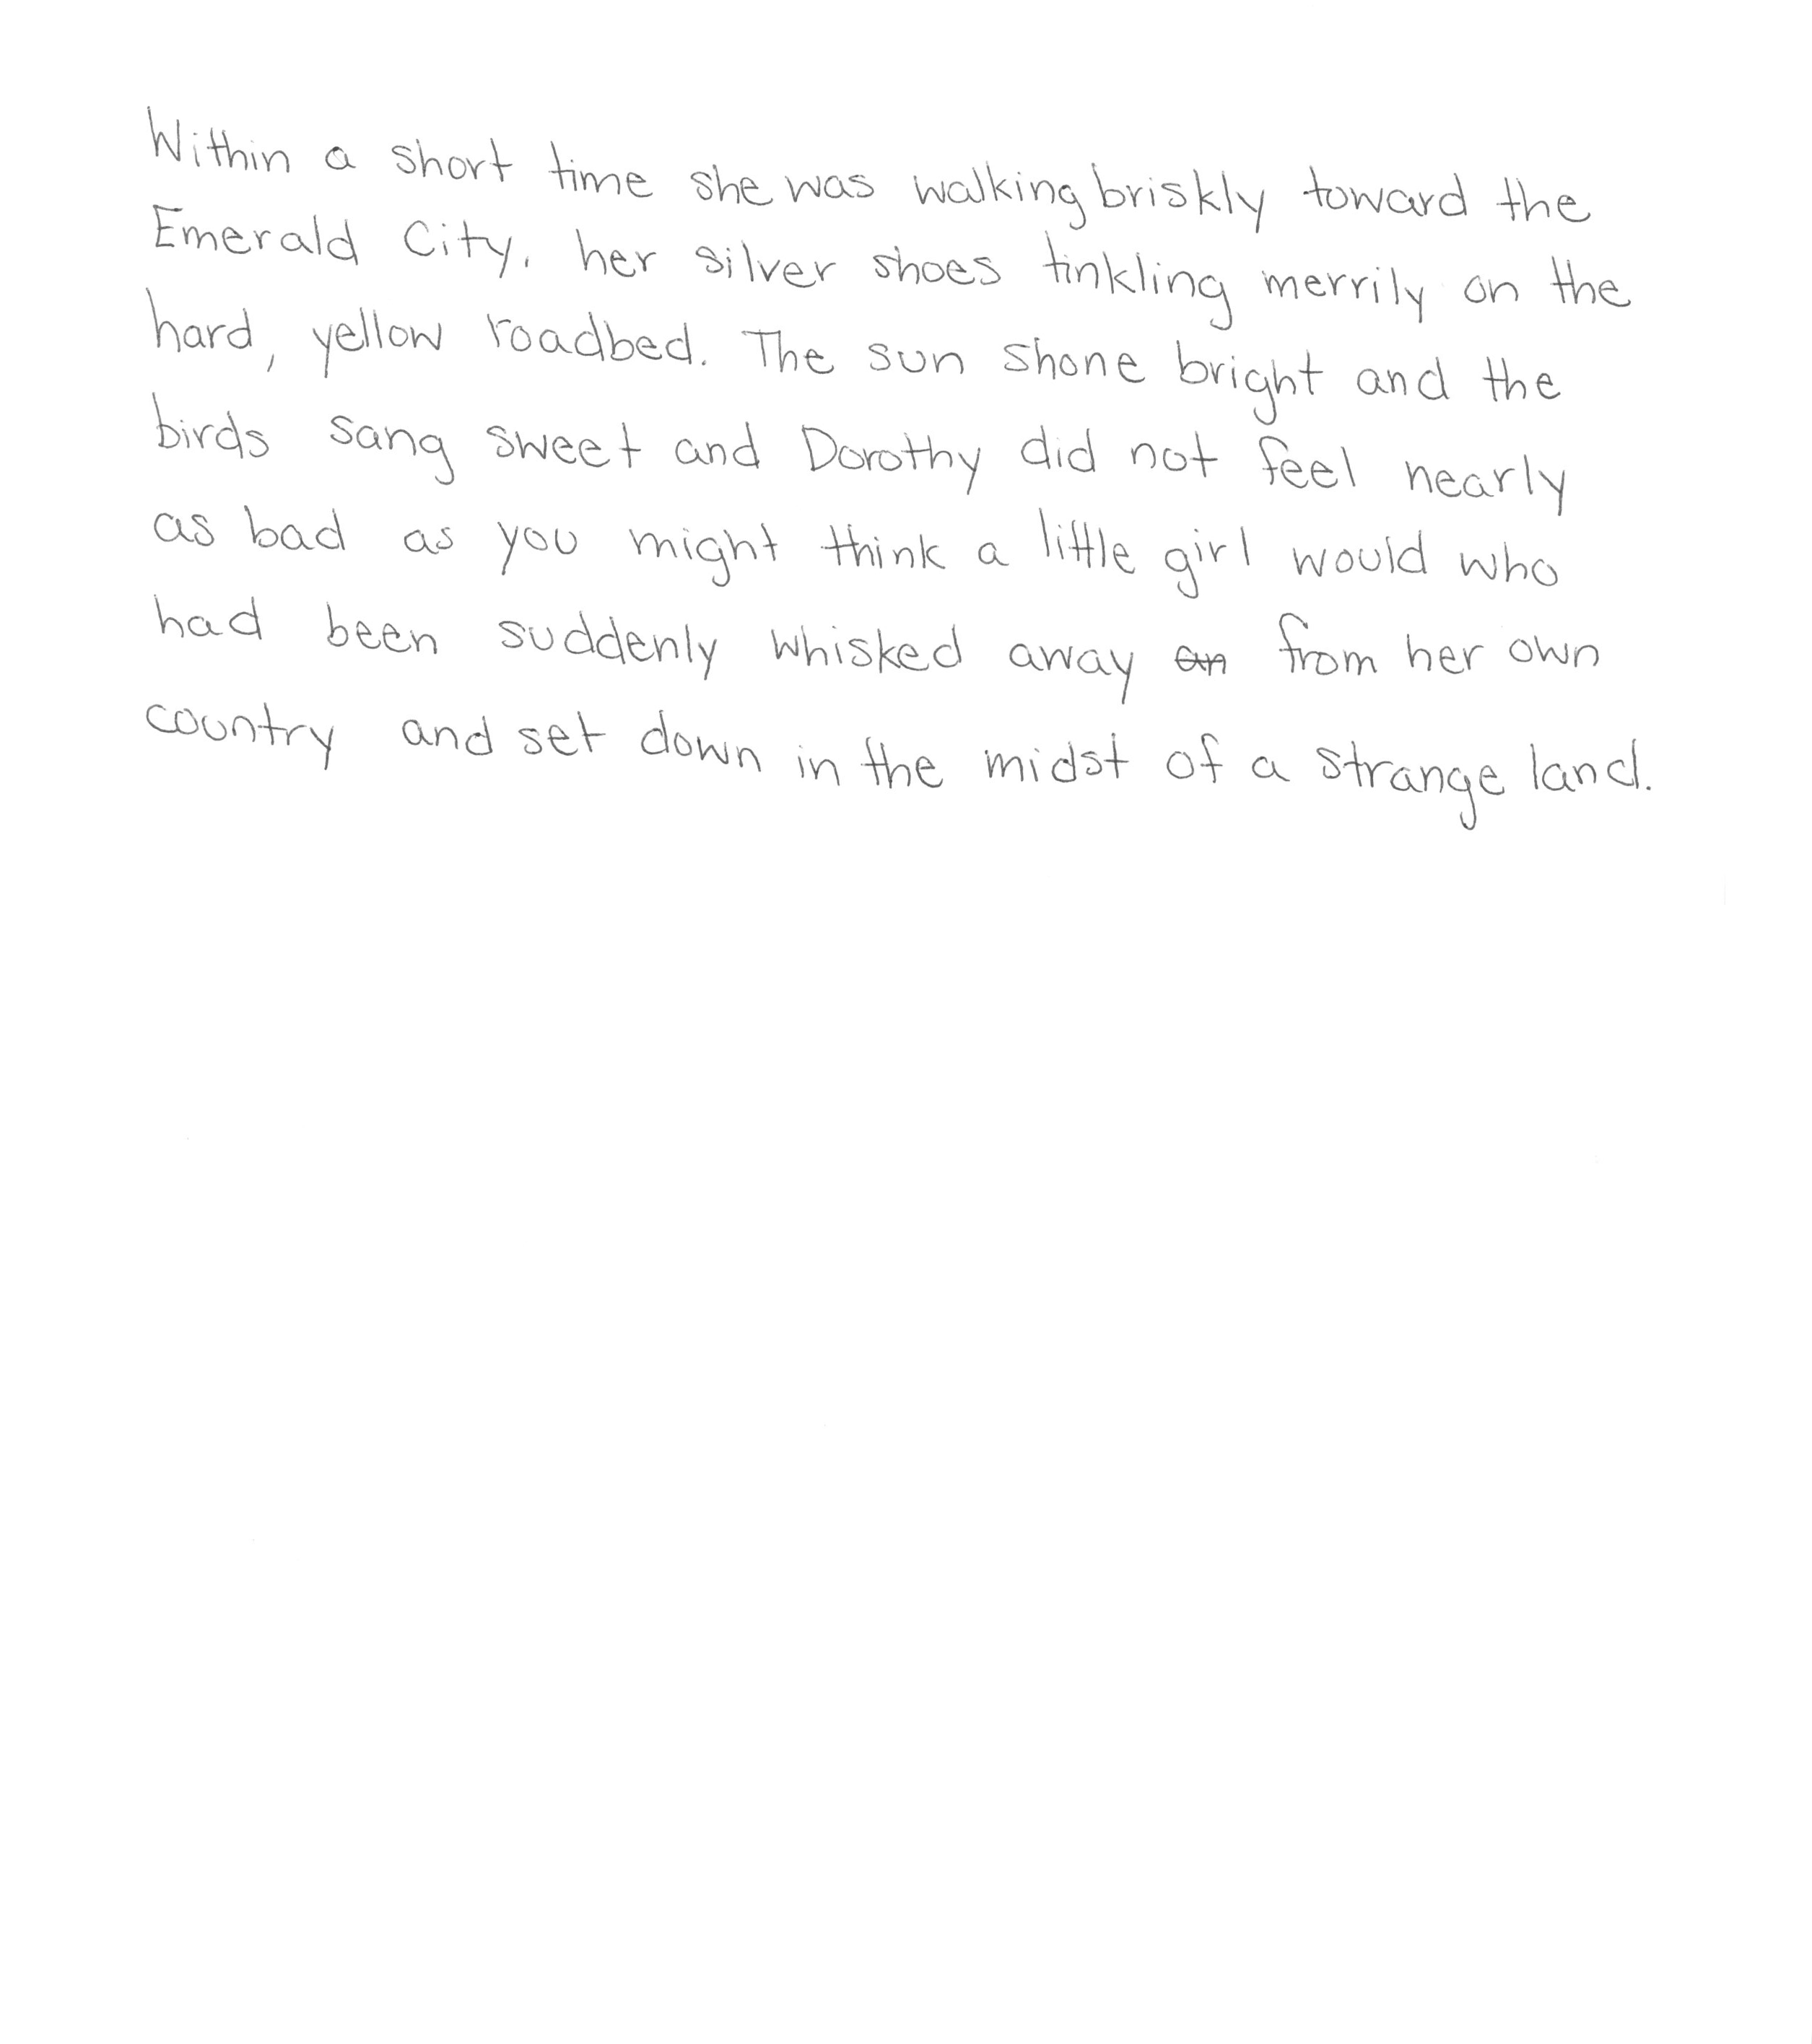 Within a short time she was walking briskly toward the
Emerald City, her silver shoes tinkling merrily on the
hard, yellow roadbed. The sun shone bright and the
birds sang sweet and Dorothy did not feel nearly
as bad as you might think a little girl would who
had been suddenly whisked away an from her own
country and set down in the midst of a strange land.